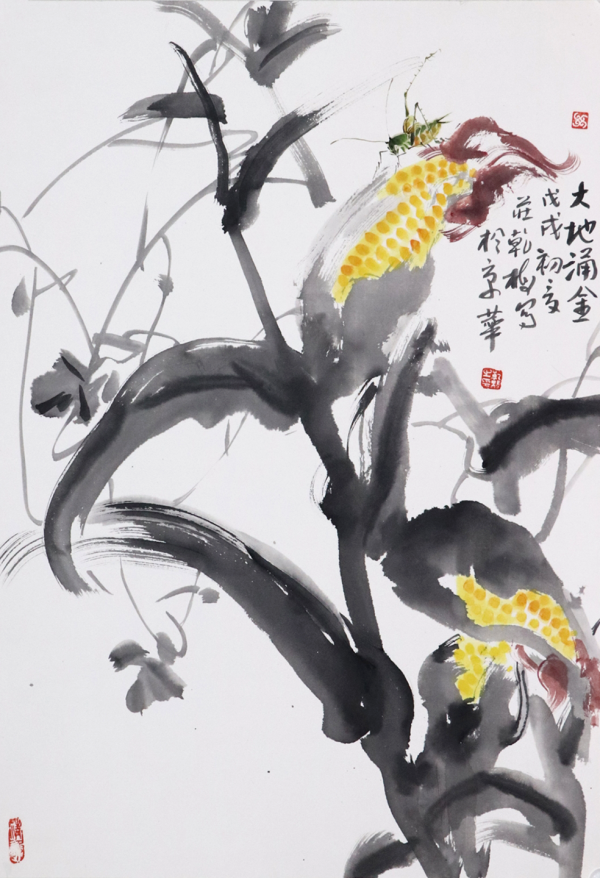 大地涌金
戊戌初夏
莊乾梅寫
於京華